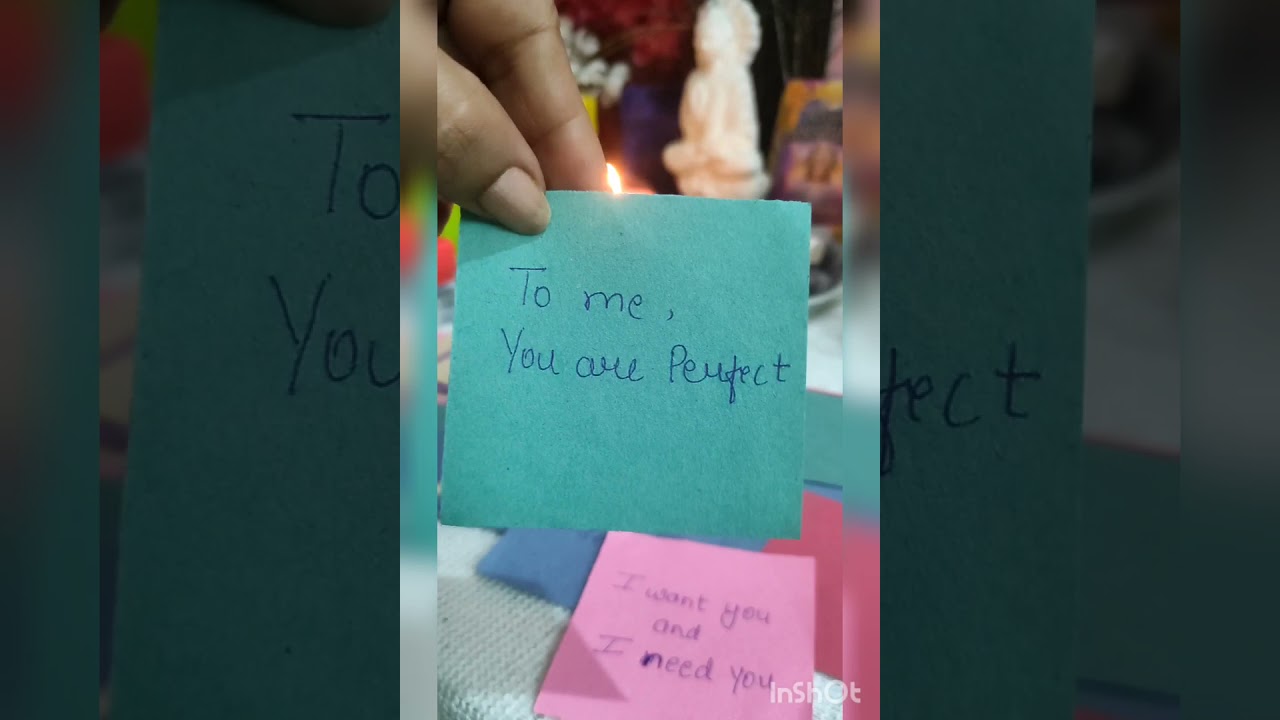 To me,
You are Perfect
I want you
and
I need you
InShOt
To
You
fect